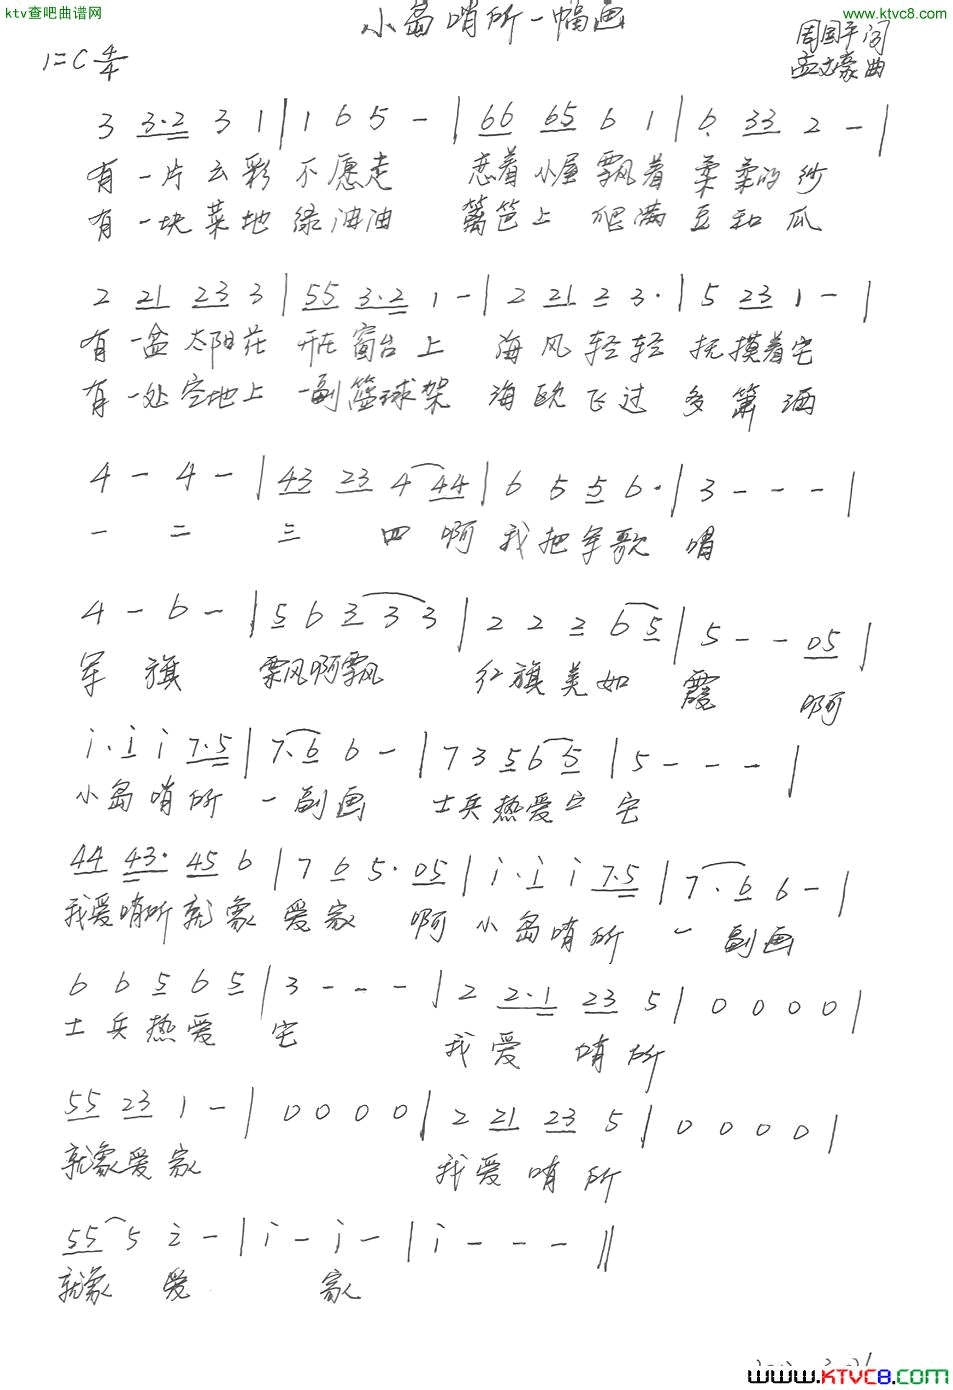 ktv查吧曲谱网
www.ktvc8.com
小岛哨所一幅画
1=C 4/4
周国平词
孟文豪曲
3 3·2 3 1 | 1 6 5 - | 66 65 6 1 | 6 33 2 - |
有一片云彩不愿走 恋着小屋飘着柔柔的纱
有一块菜地绿油油 篱笆上爬满豆和瓜
2 21 23 3 | 55 3·2 1 - | 2 21 2 3· | 5 23 1 - |
有一盆太阳花开在窗台上 海风轻轻抚摸着它
有一处空地上一副篮球架 海鸥飞过多箫洒
4 - 4 - | 43 23 4 44 | 6 5 5 6· | 3 - - - |
一二三四啊我把军歌唱
4 - 6 - | 5 6 3 3 3 | 2 2 2 6 5 | 5 - - 05 |
军旗飘风啊飘 红旗美如霞 啊
i· i i 7·5 | 7· 6 6 - | 7 3 5 6 5 | 5 - - - |
小岛哨所一副画 士兵热爱它它
44 43· 45 6 | 7 6 5· 05 | i· i i 7·5 | 7· 6 6 - |
我爱哨所就象爱家 啊小岛哨所一副画
6 6 5 6 5 | 3 - - - | 2 2·1 23 5 | 0 0 0 0 |
士兵热爱它 我爱哨所
55 23 1 - | 0 0 0 0 | 2 21 23 5 | 0 0 0 0 |
就象爱家 我爱哨所
55 5 2 - | i - i - | i - - - ‖
就象爱家
www.KTVC8.com